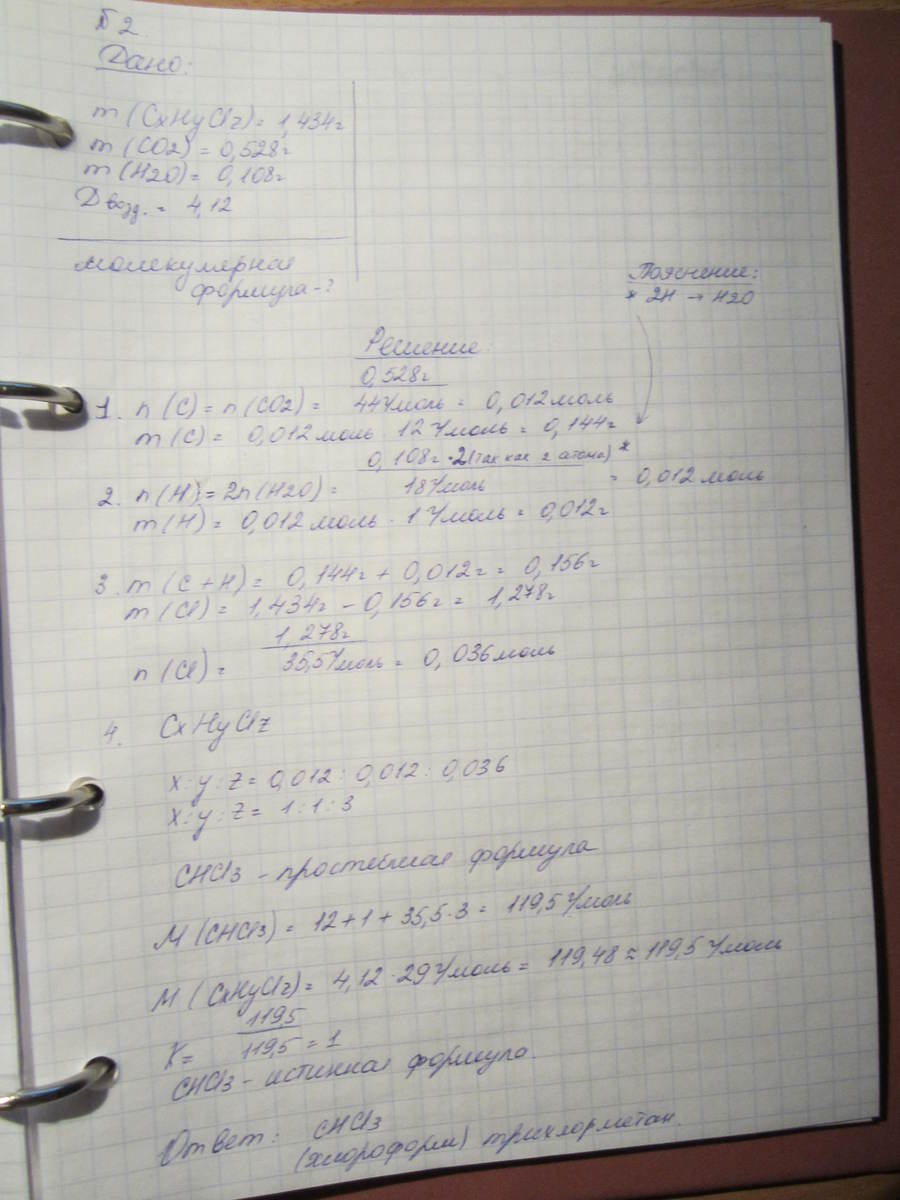 №2.
Дано:
m (CxHyClz) = 1,434г
m (CO2) = 0,528г
m (H2O) = 0,108г
Двозд. = 4,12
молекулярная
формула - ?
Пояснение:
* 2H → H2O
Решение:
0,528г
1. n (C) = n (CO2) = 44г/моль = 0,012моль
m (C) = 0,012моль · 12г/моль = 0,144г
0,108г · 2 (так как 2 атома) *
2. n (H) = 2n (H2O) = 18г/моль = 0,012моль
m (H) = 0,012моль · 1г/моль = 0,012г
3. m (C + H) = 0,144г + 0,012г = 0,156г
m (Cl) = 1,434г - 0,156г = 1,278г
1,278г
n (Cl) = 35,5г/моль = 0,036моль
4. CxHyClz
x : y : z = 0,012 : 0,012 : 0,036
x : y : z = 1 : 1 : 3
CHCl3 - простейшая формула
M (CHCl3) = 12 + 1 + 35,5 · 3 = 119,5г/моль
M (CxHyClz) = 4,12 · 29г/моль = 119,48 ≈ 119,5г/моль
119,5
K = 119,5 = 1
CHCl3 - истинная формула.
Ответ: CHCl3
(хлороформ) трихлорметан.